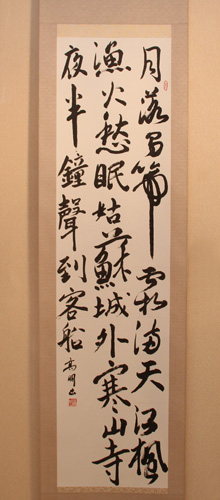 月落烏啼霜滿天江楓
漁火愁眠姑蘇城外寒山寺
夜半鐘聲到客船